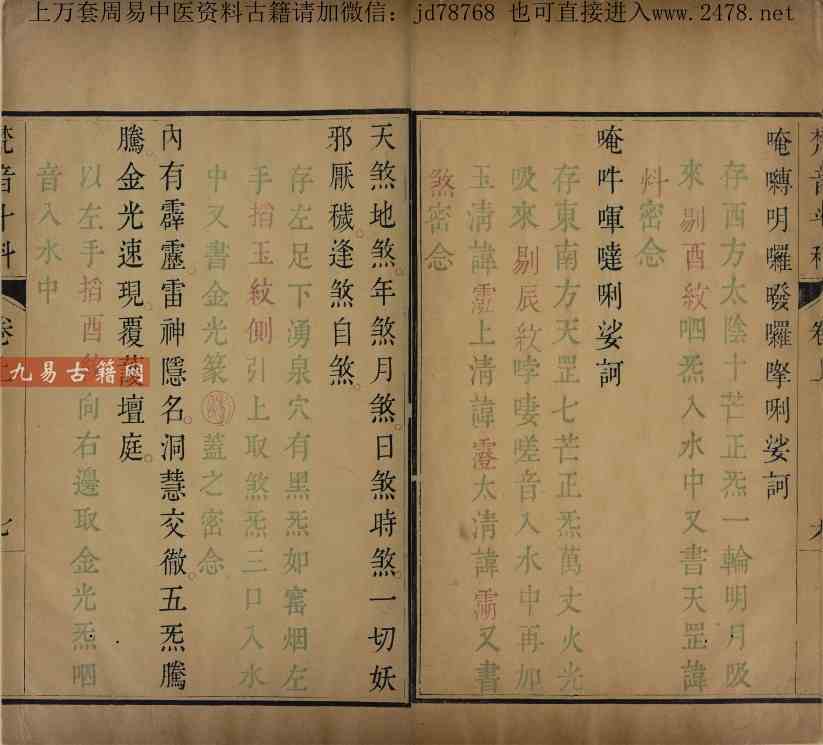 上万套周易中医资料古籍请加微信：jd78768 也可直接进入www.2478.net
梵音斗科 卷上
唵囀明囉發囉拏唎娑訶
存西方太陰十芒正炁一輪明月吸
來剔酉紋呬炁入水中又書天罡諱
炓密念
唵吽㖷噠唎娑訶
存東南方天罡七芒正炁萬丈火光
吸來剔辰紋哱嘍嗟音入水中再加
玉清諱上清諱太清諱又書
煞密念
天煞地煞。年煞月煞。日煞時煞。一切妖
邪厭穢。逢煞自煞。
存左足下湧泉穴有黑炁如窰烟左
手掐玉紋側引上取煞炁三口入水
中又書金光篆蓋之密念
內有霹靂。雷神隱名。洞慧交徹。五炁騰
騰。金光速現。覆護壇庭。
以左手掐酉向右邊取金光炁呬
音入水中
梵音斗科 卷上 七
九易古籍网